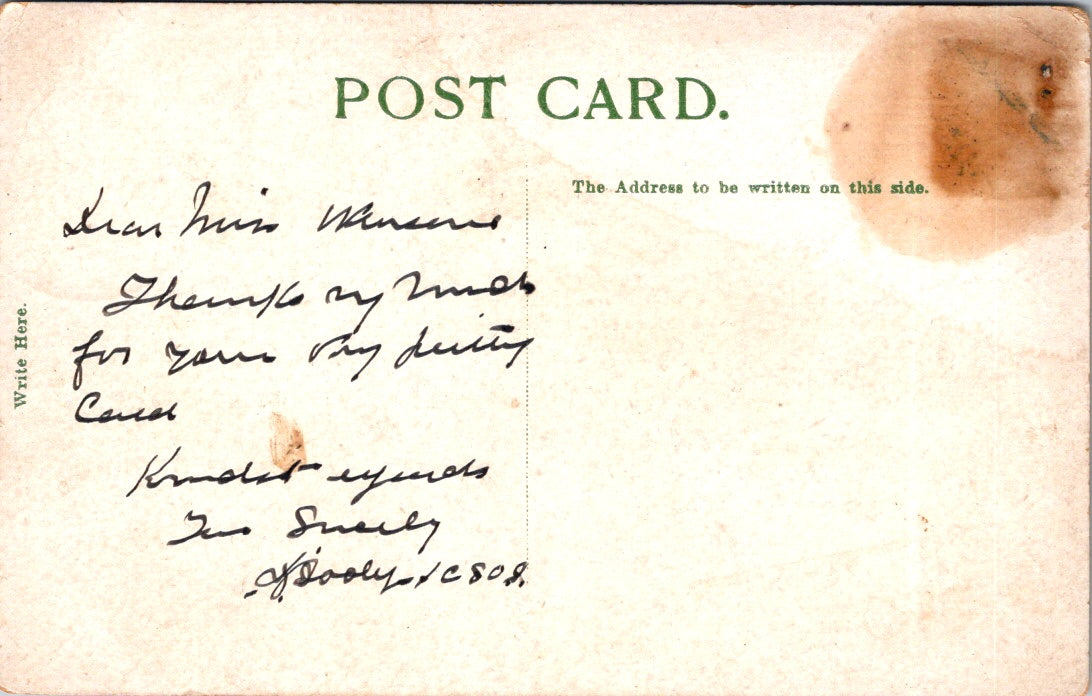 POST CARD.
The Address to be written on this side.
Write Here.
Dear Miss
Thanks vy much
for your very pretty
Card
Kindest regards
Yrs Sincerely